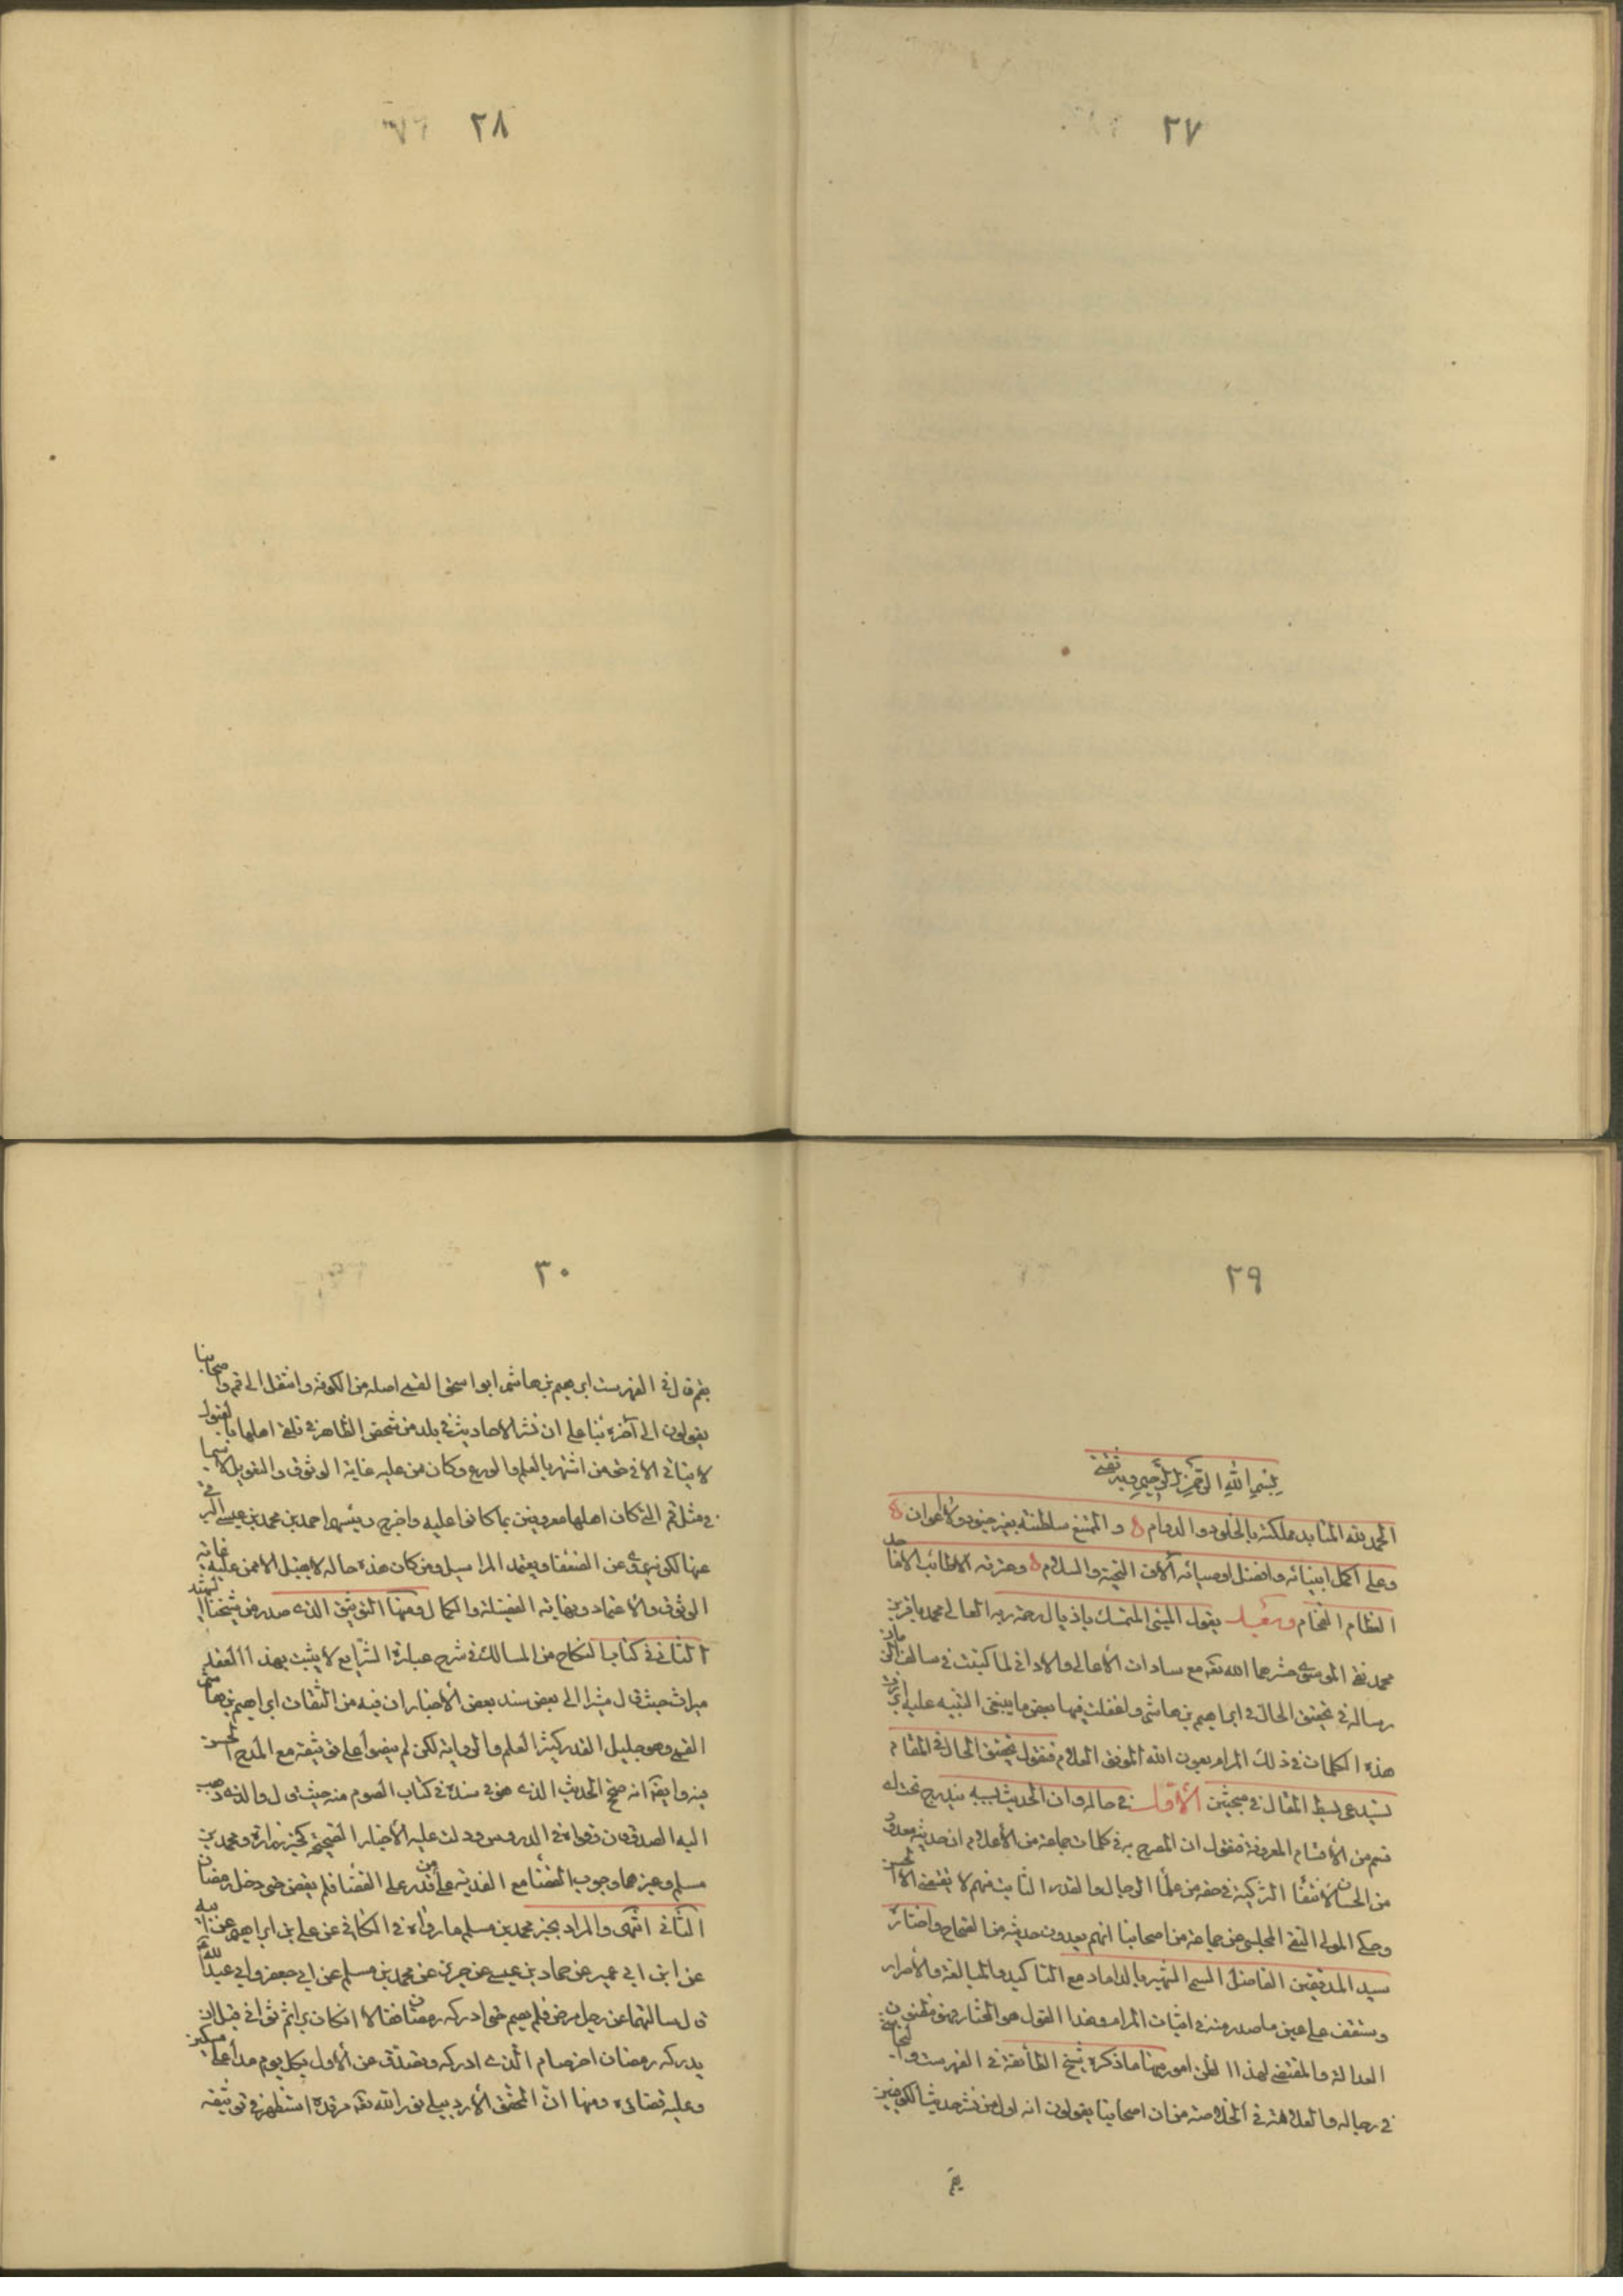 ٢٧
٢٨
٢٩
بسم الله الرحمن الرحيم وبه ثقتي
الحمد لله المتابد مملكته بالخلود والدوام و الممتنع سلطنته بغير جنود ولا اعوان
وعلى اكمل انبيائه وافضل اوصيائه آلاف التحية والسلام وعترته الاطائب الاماجد
العظام الفخام وبعد يقول المتمسك باذيال رحمة ربه العالي محمد باقر بن
محمد نقي الموسوي حشرهما الله تعه مع سادات الأعالي والاداني لما كتبت في سالف
رسالة في تحقيق الحال في ابراهيم بن هاشم واغفلت فيها بعض ما ينبغي التنبيه عليه
هذه الكلمات في ذلك المرام بعون الله الموفق العلام فنقول تحقيق الحال في المقام
يستدعي بسط المقال في مبحثين الأول في حاله وان الحديث بسببه يندرج تحت اى
قسم من الأقسام المعروفة فنقول ان المصرح به في كلمات جماعة من الأعلام ان حديثه معدود
من الحسان لانتفاء التزكية في حقه من علماء الرجال والقدر الثابت فيهم لا يقتضي الا الحسن
وحكى المولى التقي المجلسي عن جماعة من اصحابنا انهم يعدون حديثه من الصحاح واختاره
سيد المدققين الفاضل المسمى الشهير بالداماد مع التاكيد والمبالغة والأصرار
وستقف على عين ما صدر منه في اثبات المرام وهذا القول هو المختار
العدالة والمقتضي لهذا الظن امور منها ما ذكره شيخ الطائفة في الفهرست والنجاشي
في رجاله والعلامة في الخلاصة من ان اصحابنا يقولون انه اول من نشر حديث الكوفيين
بقم
٣٠
بقم قال في الفهرست ابرهيم بن هاشم ابو اسحق القمي اصله من الكوفة وانتقل الى قم واصحابنا
يقولون الى آخره بناء على ان نشر الاحاديث في بلد من شخص الظاهر في تلقي اهلها بالقبول
لا يتاتى الا في حق من اشتهر بالعلم والورع وكان من عليه غاية الوثوق والتعويل لا سيما
في مثل قم التي كان اهلها معروفين بما كانوا عليه واخرج رئيسهم احمد بن محمد بن عيسى البرقي
عنها لكونه يروي عن الضعفاء ويعتمد المراسيل ومن كان هذه حاله لا يقبل الا ممن عليه غاية
الوثوق والأعتماد ونهاية الفضيلة والكمال ومنها التوثيق الذي صدر من شيخنا الشهيد
الثاني في كتاب النكاح من المسالك في شرح عبارة الشرايع لا يثبت بهذا العقد
ميراث حيث قال مشيرا الى بعض سند بعض الأخبار ان فيه من الثقات ابراهيم بن هاشم
القمي وهو جليل القدر كثير العلم والرواية لكن لم ينصوا على توثيقه مع المدح الحسن
فيه وايضا انه صحح الحديث الذي هو في سنده في كتاب الصوم منه حيث قال والذي ذهب
اليه الصدوقان وقواه في الدروس ودلت عليه الأخبار الصحيحة كخبر زرارة ومحمد بن
مسلم وغيرهما وجوب القضاء مع الفدية على من قدر على القضاء فلم يقض حتى دخل رمضان
الثاني انتهى والمراد بخبر محمد بن مسلم ما رواه في الكافي عن علي بن ابراهيم عن ابيه
عن ابن ابي عمير عن حماد بن عيسى عن حريز عن محمد بن مسلم عن ابي جعفر وابي عبد الله ع
قال سالتهما عن رجل مرض فلم يصم حتى ادركه رمضان فقالا ان كان برأ ثم توانى قبل ان
يدركه رمضان اخر صام الذي ادركه وتصدق عن الأول بكل يوم مدا على مسكين
وعليه قضاؤه ومنها ان المحقق الأردبيلي نور الله تعه مرقده استظهر في توثيقه